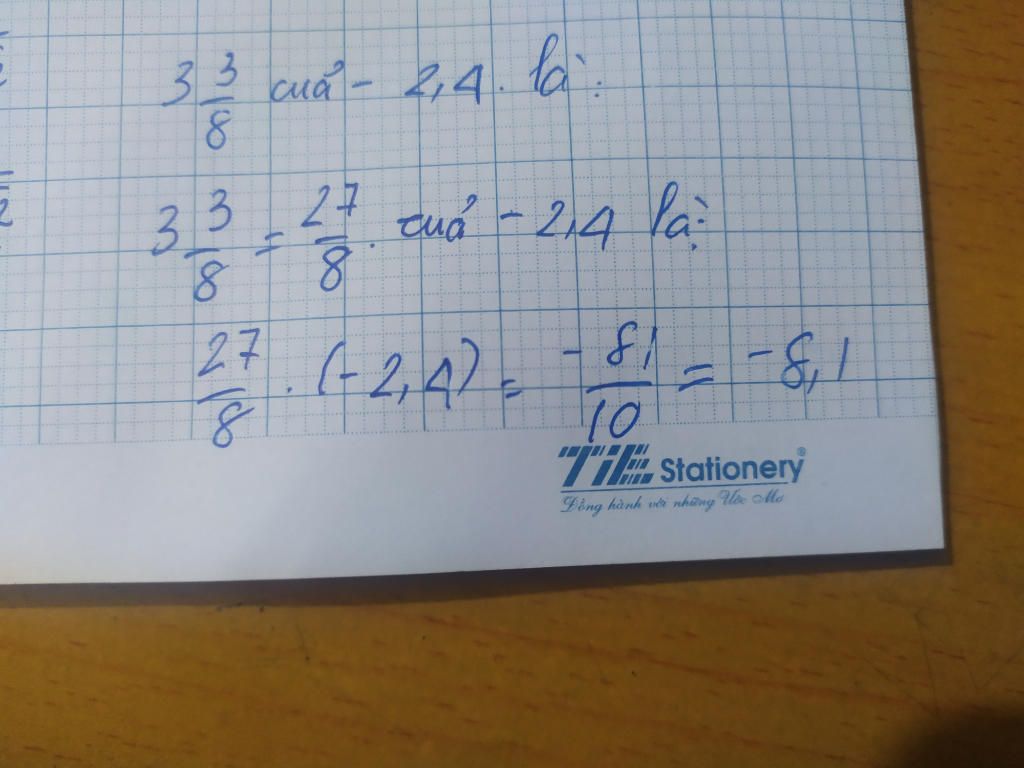 3 3/8 của - 2,4. là:
3 3/8 = 27/8. của - 2,4 là:
27/8 . (- 2,4) = -81/10 = -8,1
TiE Stationery®
Đồng hành với những Ước Mơ